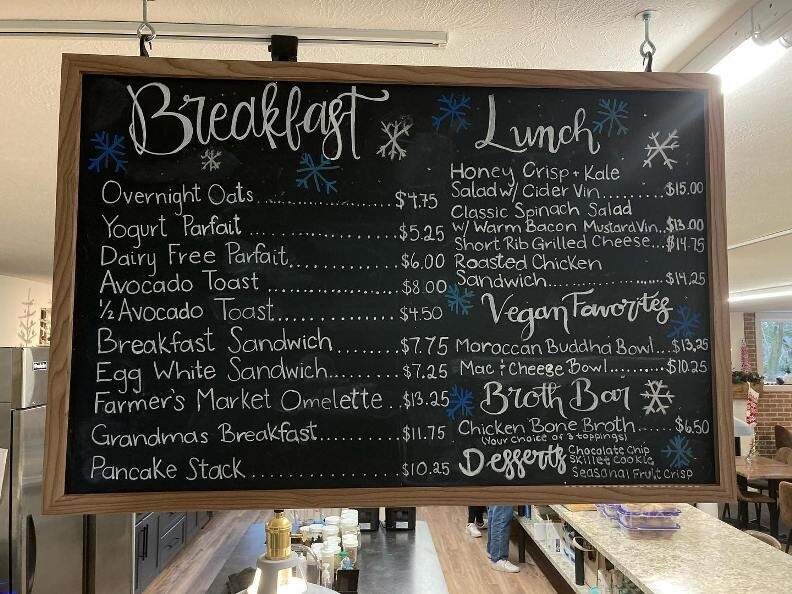 Breakfast
Overnight Oats.................... $4.75
Yogurt Parfait .................... $5.25
Dairy Free Parfait................ $6.00
Avocado Toast .................... $8.00
½ Avocado Toast.................. $4.50
Breakfast Sandwich ....... $7.75
Egg White Sandwich....... $7.25
Farmer's Market Omelette .. $13.25
Grandmas Breakfast.......... $11.75
Pancake Stack.................... $10.25
Lunch
Honey Crisp + Kale
Salad w/ Cider Vin.......... $15.00
Classic Spinach Salad
w/ Warm Bacon Mustard Vin.. $13.00
Short Rib Grilled Cheese... $14.75
Roasted Chicken
Sandwich....................... $14.25
Vegan Favorites
Moroccan Buddha Bowl.... $13.25
Mac & Cheese Bowl.......... $10.25
Broth Bar
Chicken Bone Broth...... $6.50
(Your choice of 3 toppings)
Desserts
Chocolate Chip
Skillet Cookie
Seasonal Fruit Crisp